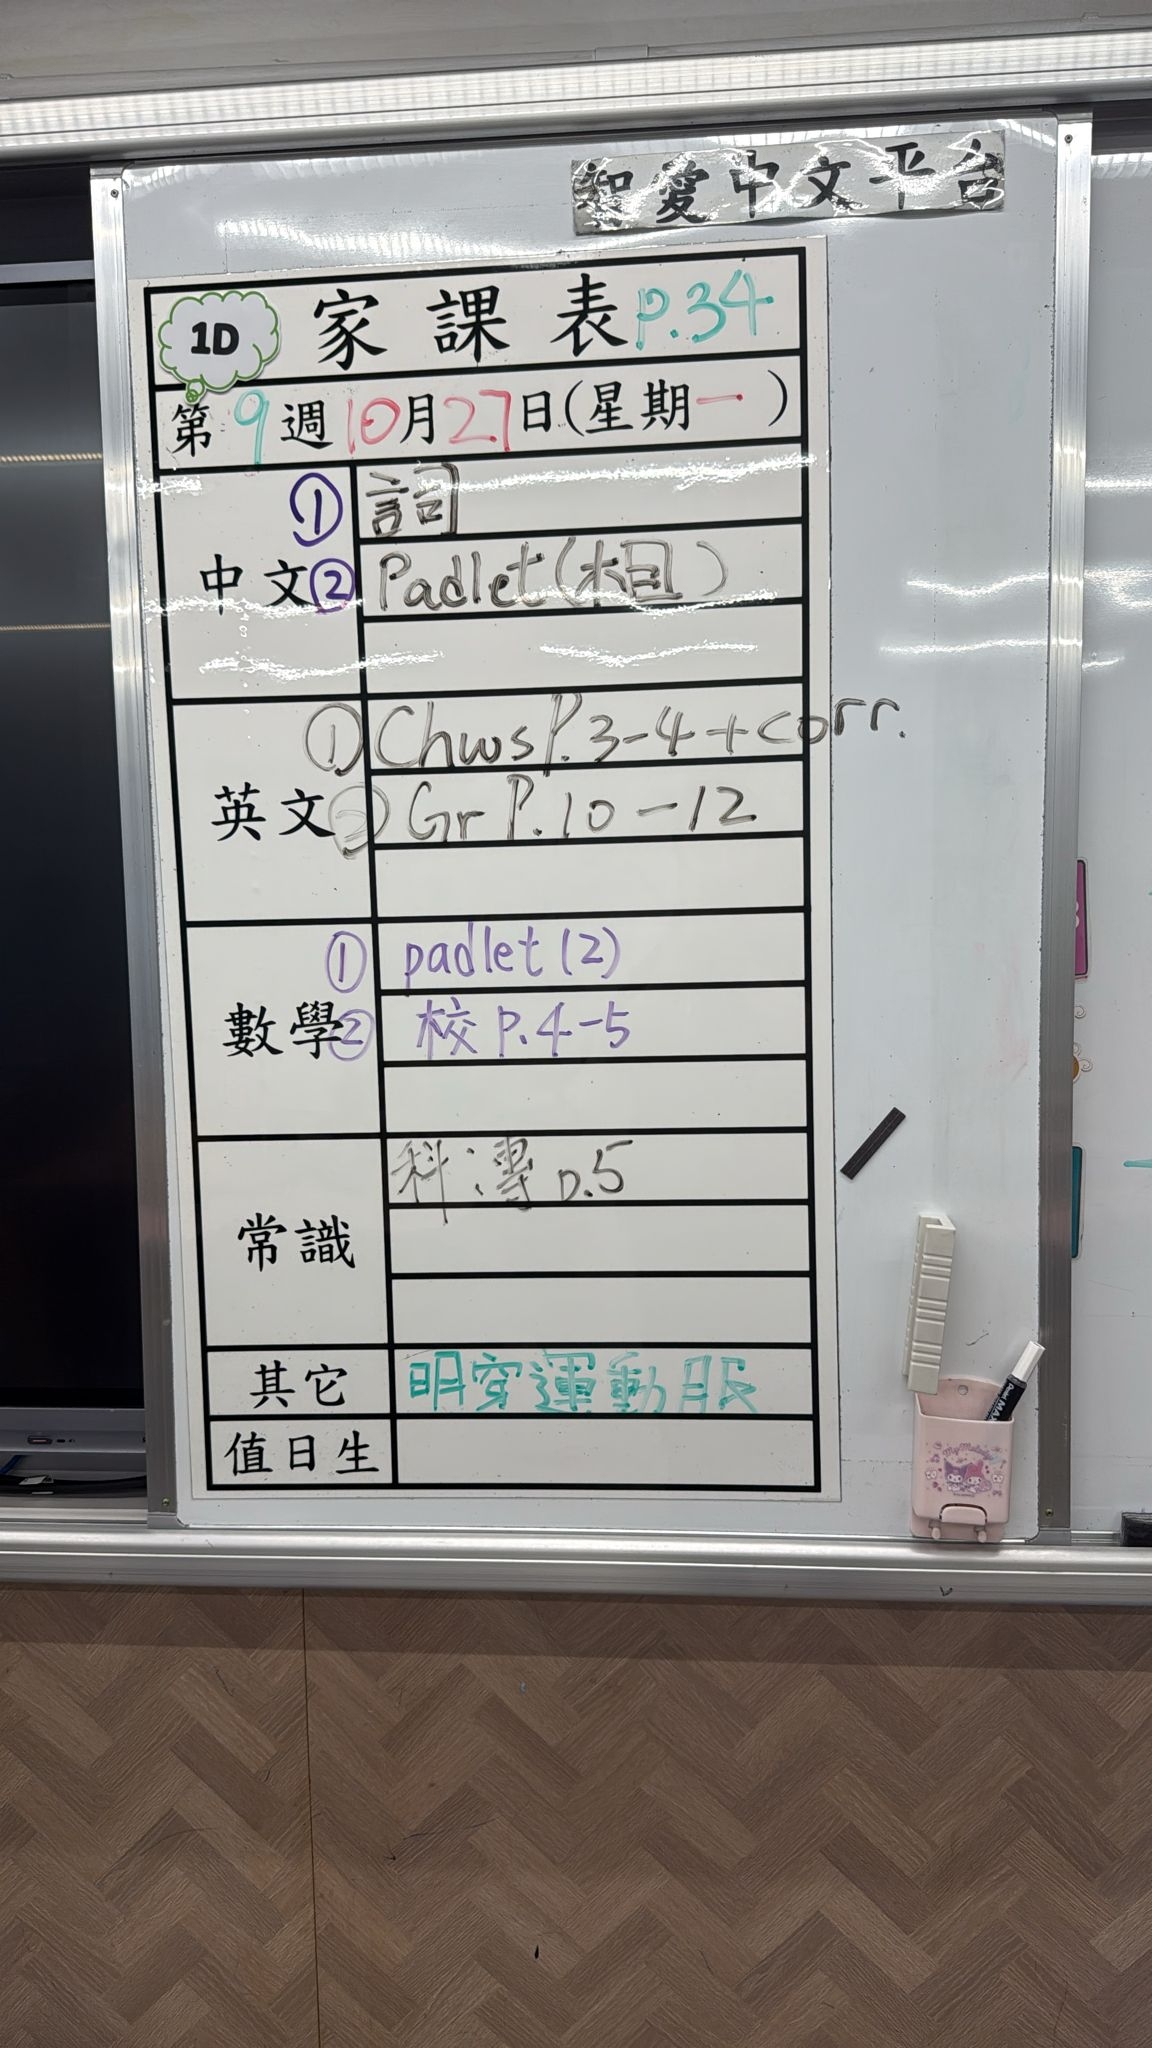 知愛中文平台
1D 家課表 P.34
第9週10月27日(星期一)
中文
① 詞
② Padlet(相)
英文
① Chws P.3-4+corr.
② Gr P.10-12
數學
① padlet(2)
② 校 P.4-5
常識
科 p.5
其它
明穿運動服
值日生